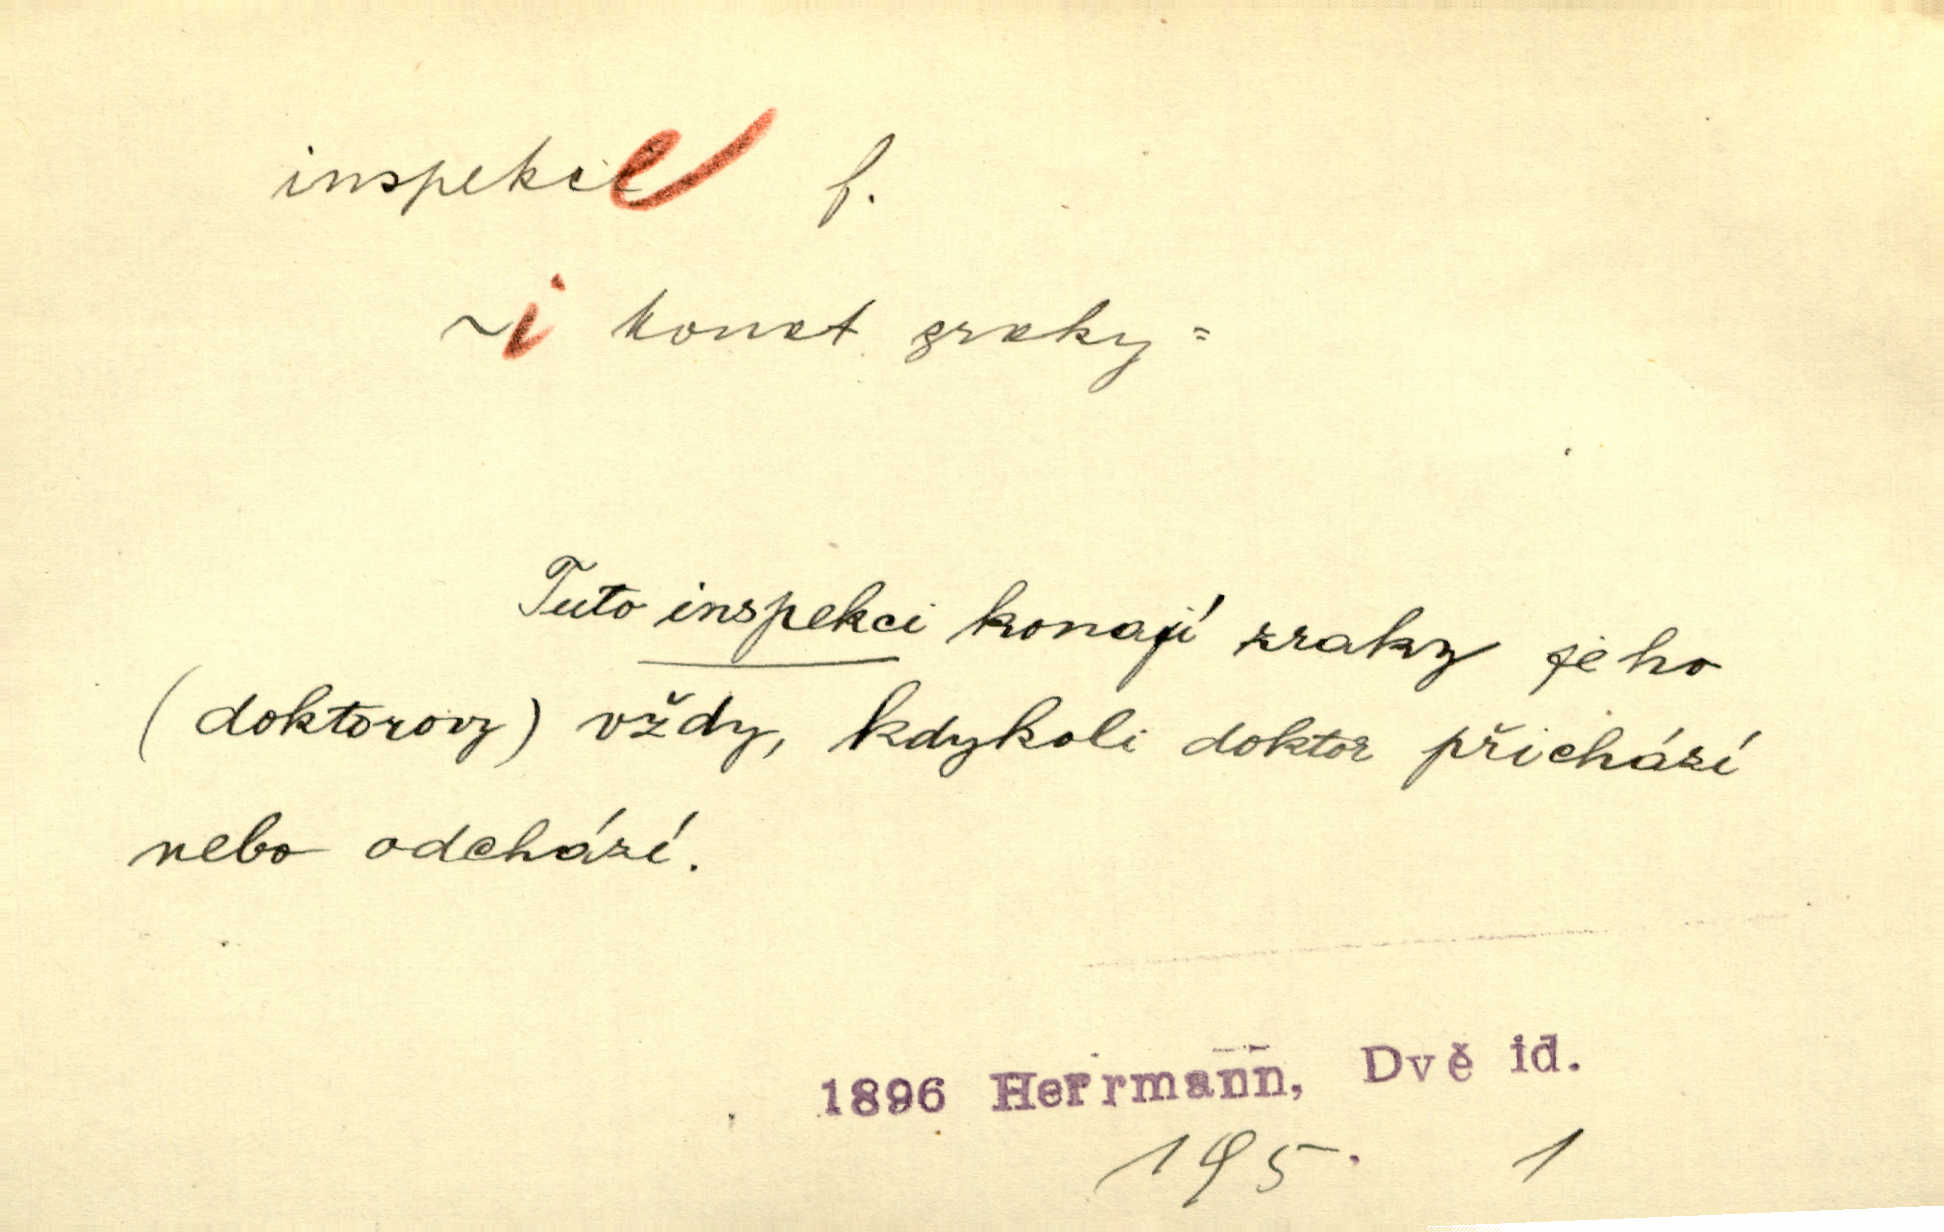 inspekce f.
~i konat zraky =
Tuto inspekci konají zraky jeho
(doktorovy) vždy, kdykoli doktor přichází
nebo odchází.
1896 Herrmann, Dvě id.
195. 1